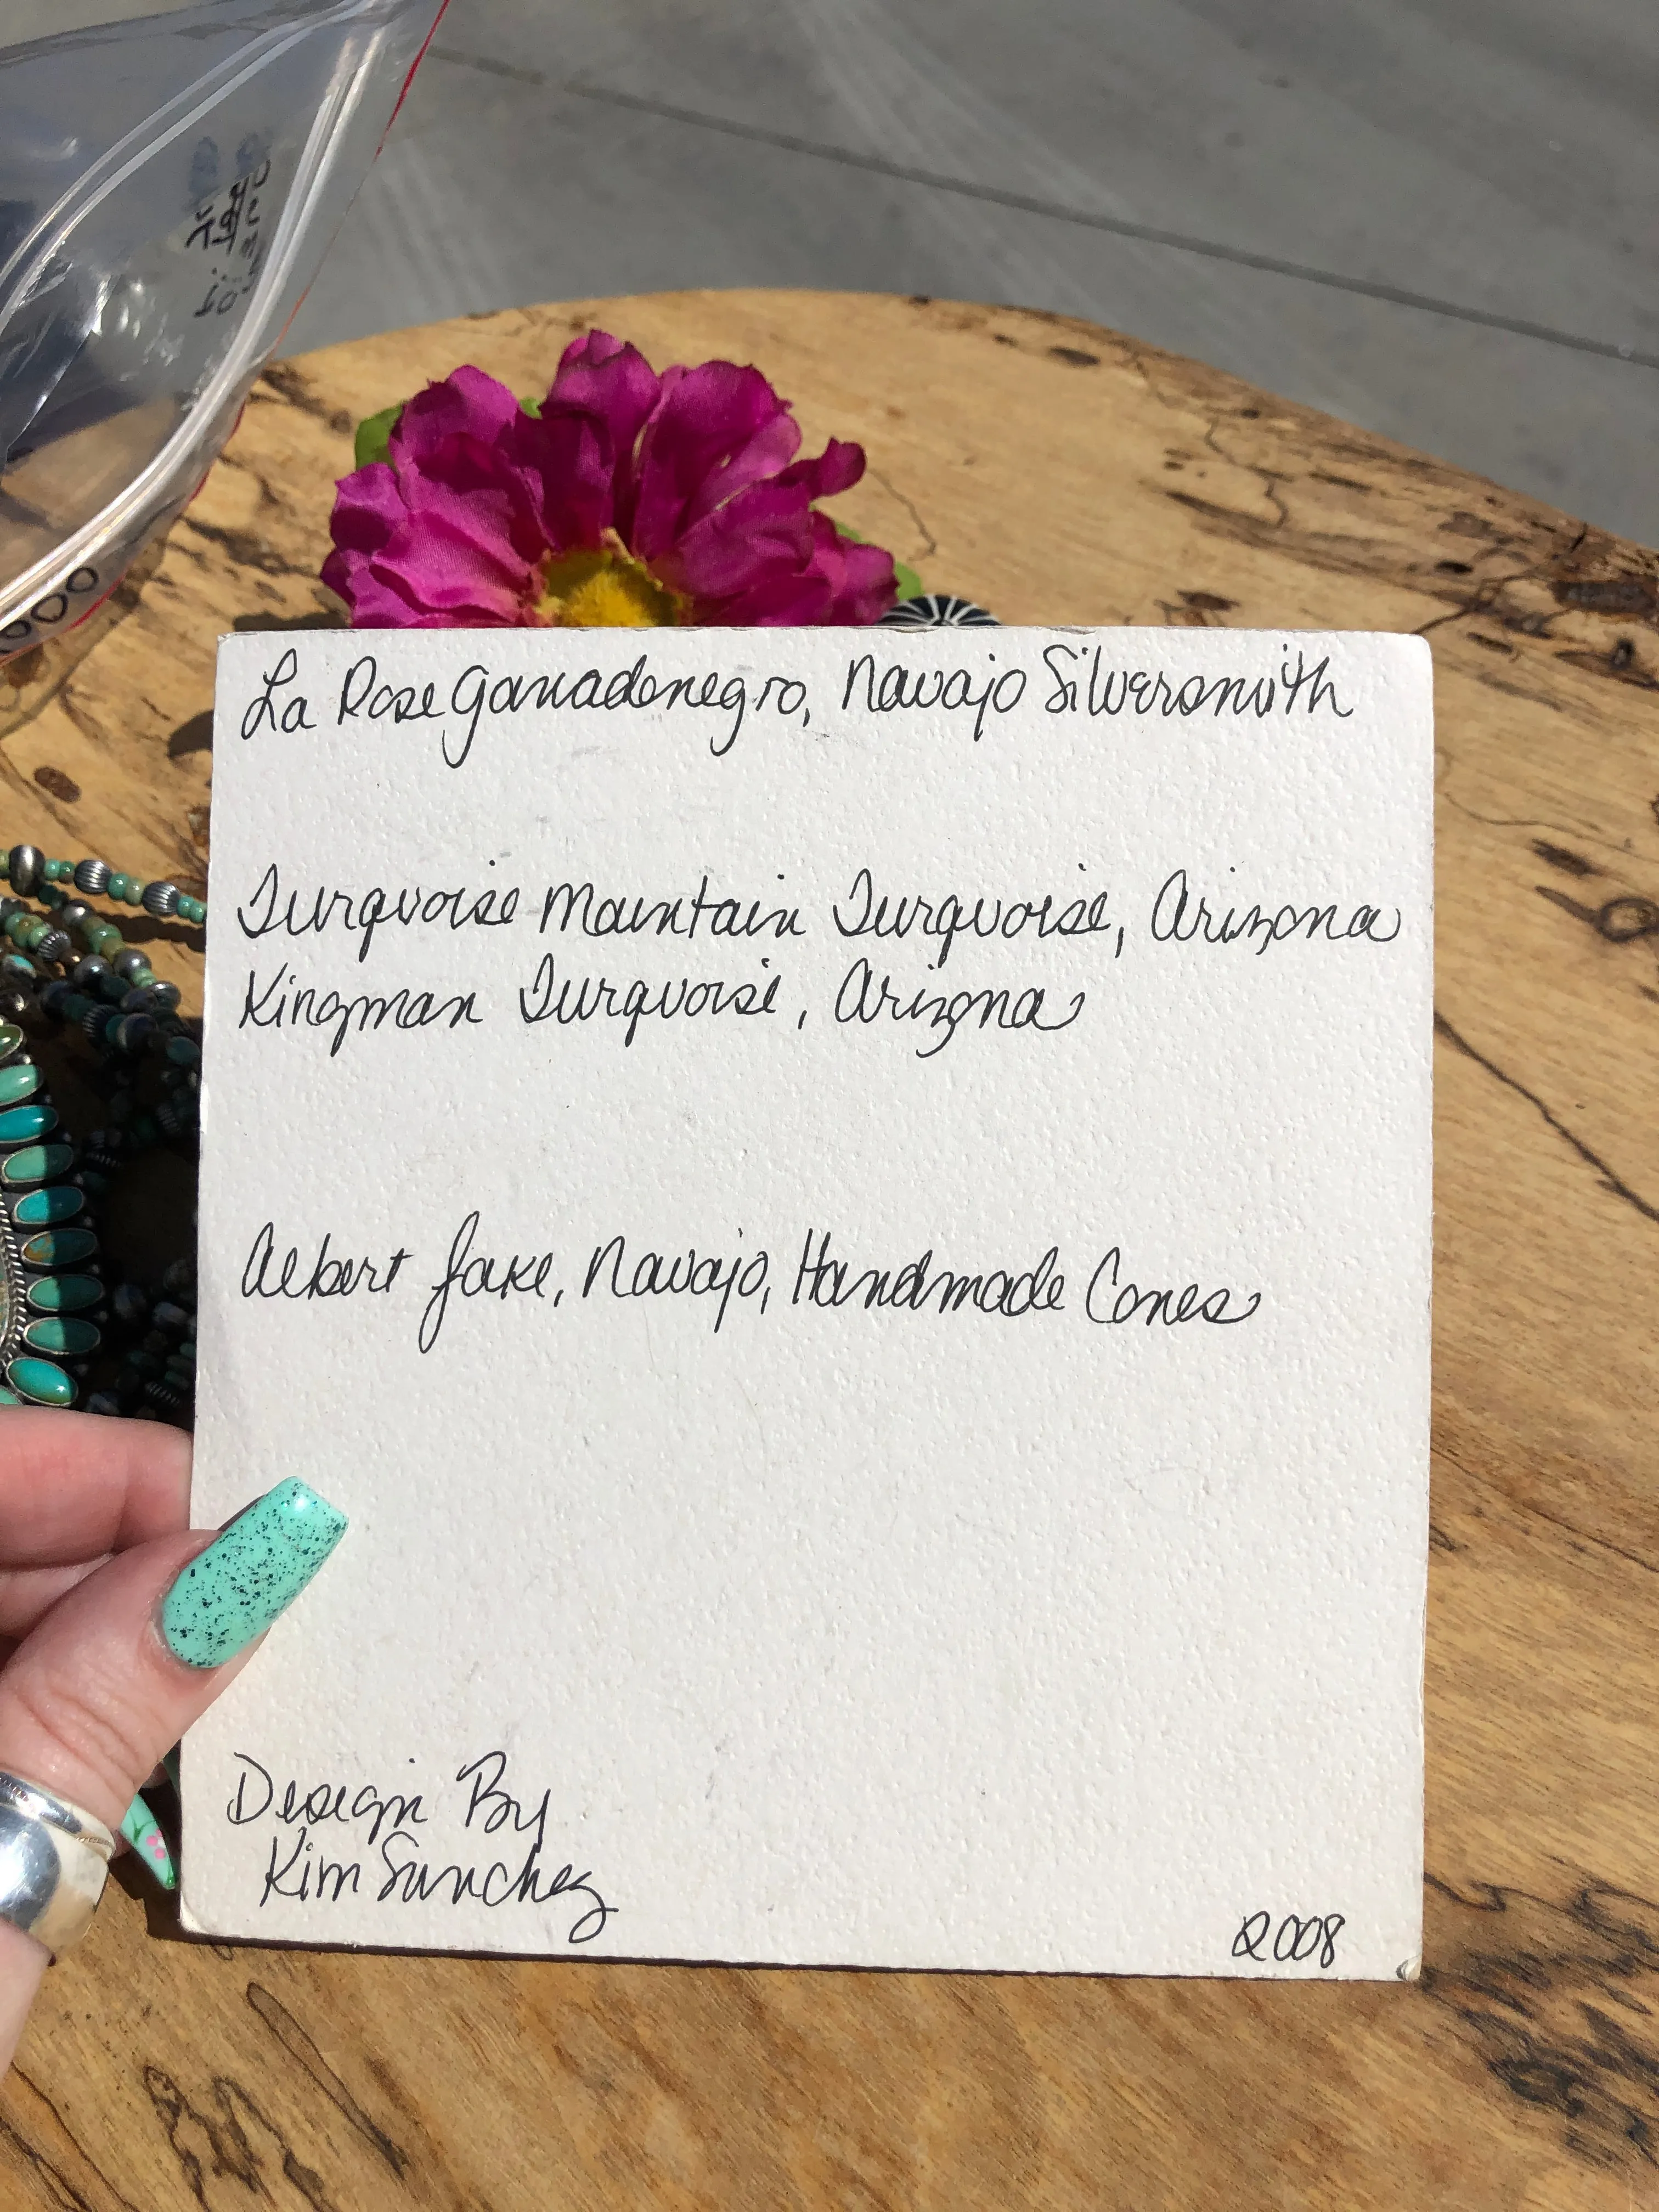 La Rose Ganadonegro, Navajo Silversmith
Turquoise Mountain Turquoise, Arizona
Kingman Turquoise, Arizona
Albert Jake, Navajo, Handmade Cones
Design By
Kim Sanchez
2008